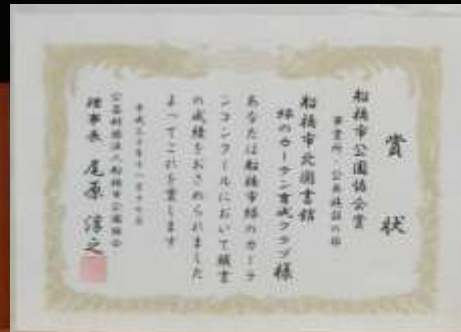 賞状
船橋市公園協会賞
事業所・公共施設の部
船橋市北図書館
緑のカーテン育成クラブ様
あなたは船橋市緑のカーテ
ンコンクールにおいて頭書
の成績をおさめられました
よってこれを賞します
平成三十年十一月十七日
公益財団法人船橋市公園協会
理事長 尾原淳之